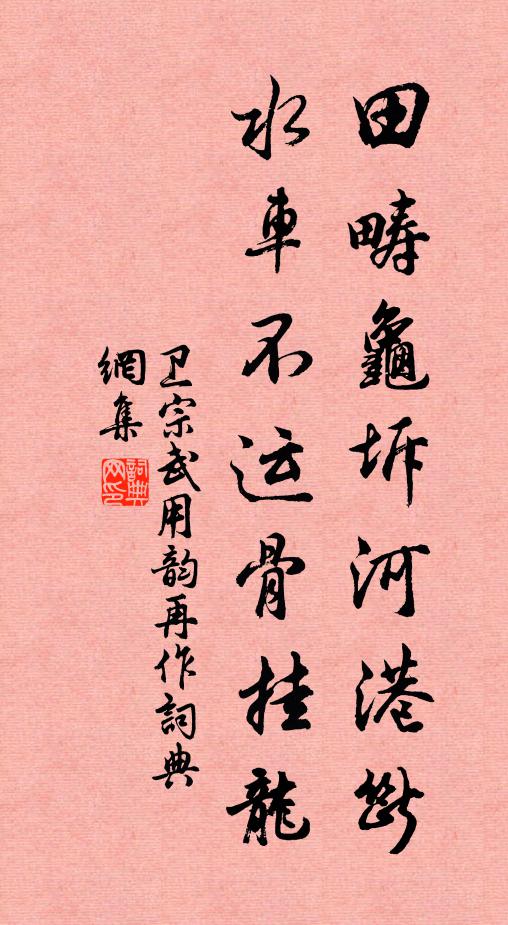 田疇龜坼河港斷
水車不运骨挂龍
卫宗武用韵再作詞典
網集
詞典网印